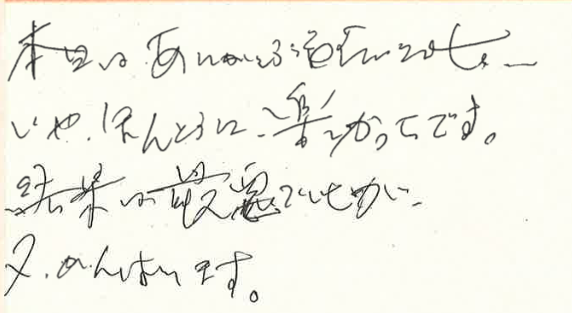 本日はありがとう御座いました
いや、ほんとうに、楽かったです。
結果は最悪でしたが、
又、がんばります。